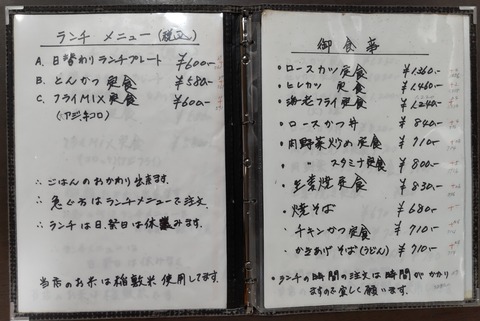 ランチ メニュー (税込)
A. 日替わりランチプレート ¥600-
B. とんかつ定食 ¥580-
C. フライMIX定食 ¥600-
(アジ、キコロ)
∴ごはんのおかわり出来ます。
∴急ぐ方はランチメニューで注文。
∴ランチは日、祭日は休みます。
当店のお米は稲敷米使用してます。
御食事
・ロースカツ定食 ¥1,260-
・ヒレカツ 定食 ¥1,460-
・海老フライ定食 ¥1,240-
・ロースかつ丼 ¥840-
・肉野菜炒め定食 ¥710-
・ 〃 スタミナ定食 ¥800-
・生姜焼定食 ¥830-
・焼そば ¥680-
・チキンかつ定食 ¥710-
・かきあげそば(うどん) ¥710-
・ランチの時間の注文は時間がかかり
ますので宜しく願います。